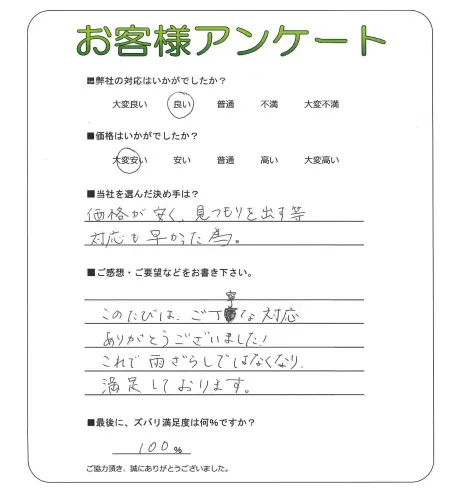 お客様アンケート
■弊社の対応はいかがでしたか？
大変良い 良い 普通 不満 大変不満
■価格はいかがでしたか？
大変安い 安い 普通 高い 大変高い
■当社を選んだ決め手は？
価格が安く、見つもりを出す等
対応も早かった為。
■ご感想・ご要望などをお書き下さい。
このたびは、ご丁寧な対応
ありがとうございました！
これで雨ざらしではなくなり、
満足しております。
■最後に、ズバリ満足度は何％ですか？
100％
ご協力頂き、誠にありがとうございました。